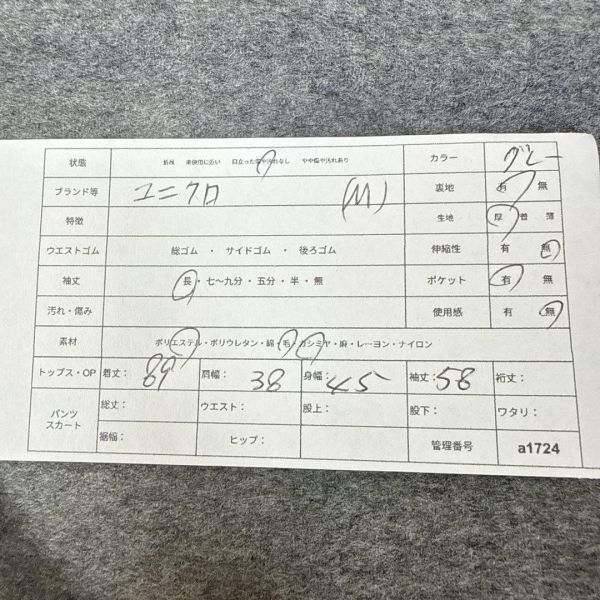 状態 新品 未使用に近い 目立った傷や汚れなし やや傷や汚れあり カラー グレー
ブランド等 ユニクロ (M) 裏地 有 無
特徴 生地 厚 普 薄
ウエストゴム 総ゴム ・ サイドゴム ・ 後ろゴム 伸縮性 有 無
袖丈 長・七〜九分・五分・半・無 ポケット 有 無
汚れ・傷み 使用感 有 無
素材 ポリエステル・ポリウレタン・綿・毛・カシミヤ・麻・レーヨン・ナイロン
トップス・OP 着丈: 89 肩幅: 38 身幅: 45 袖丈: 58 裄丈:
パンツ スカート 総丈: ウエスト: 股上: 股下: ワタリ:
裾幅: ヒップ: 管理番号 a1724